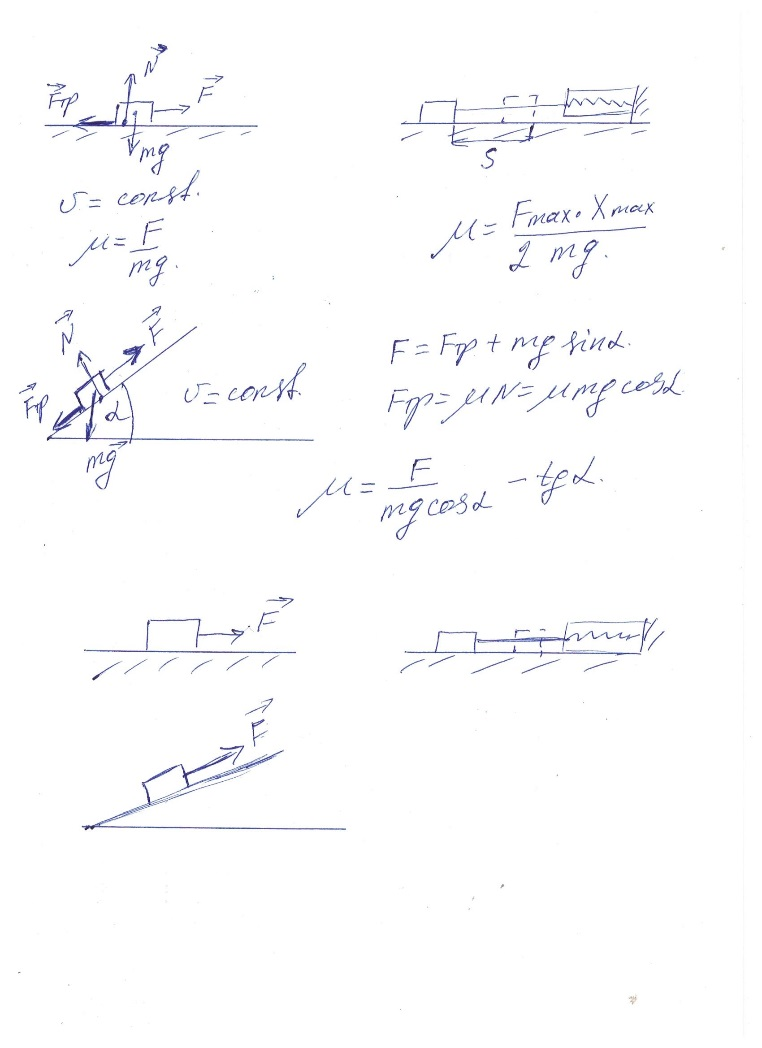 N
Fтр
F
mg
S
υ = const.
μ = F / mg.
μ = Fmax · Xmax / 2 mg.
N
F
Fтр
α
mg
υ = const.
F = Fтр + mg sinα.
Fтр = μN = μmg cosα.
μ = F / mg cosα − tgα.
F
F